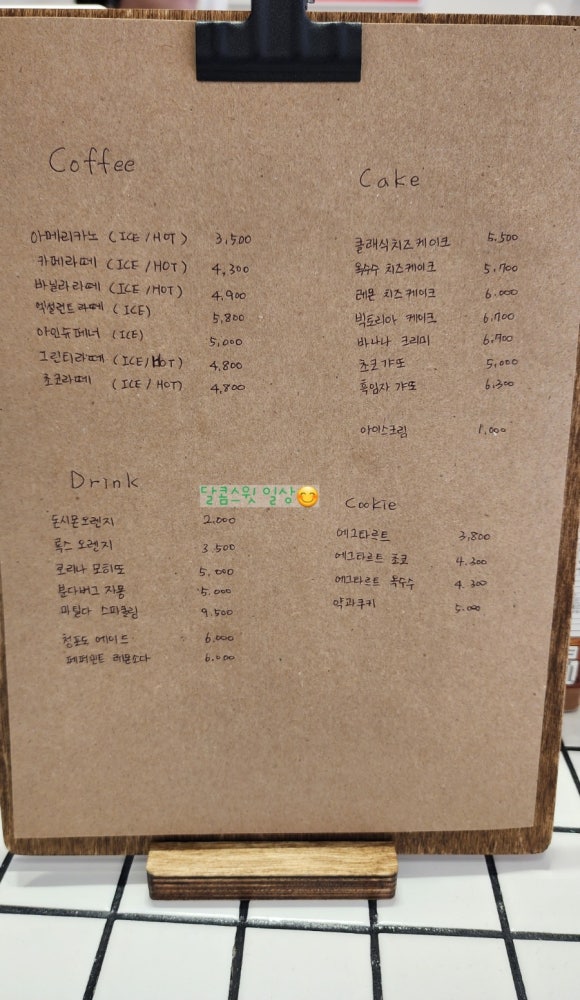 Coffee
아메리카노 (ICE/HOT) 3,500
카페라떼 (ICE/HOT) 4,300
바닐라라떼 (ICE/HOT) 4,900
엑설런트라떼 (ICE) 5,800
아인슈페너 (ICE) 5,000
그린티라떼 (ICE/HOT) 4,800
초코라떼 (ICE/HOT) 4,800
Cake
클래식치즈케이크 5,500
옥수수 치즈케이크 5,700
레몬 치즈케이크 6,000
빅토리아 케이크 6,700
바나나 크리미 6,700
초코갸또 5,000
흑임자 갸또 6,300
아이스크림 1,000
Drink
돈시몬오렌지 2,000
록스 오렌지 3,500
코리나 모히또 5,000
분다버그 자몽 5,000
마틸다 스파클링 9,500
청포도 에이드 6,000
페퍼민트 레몬소다 6,000
달콤스윗 일상😊
Cookie
에그타르트 3,800
에그타르트 초코 4,300
에그타르트 옥수수 4,300
약과쿠키 5,000